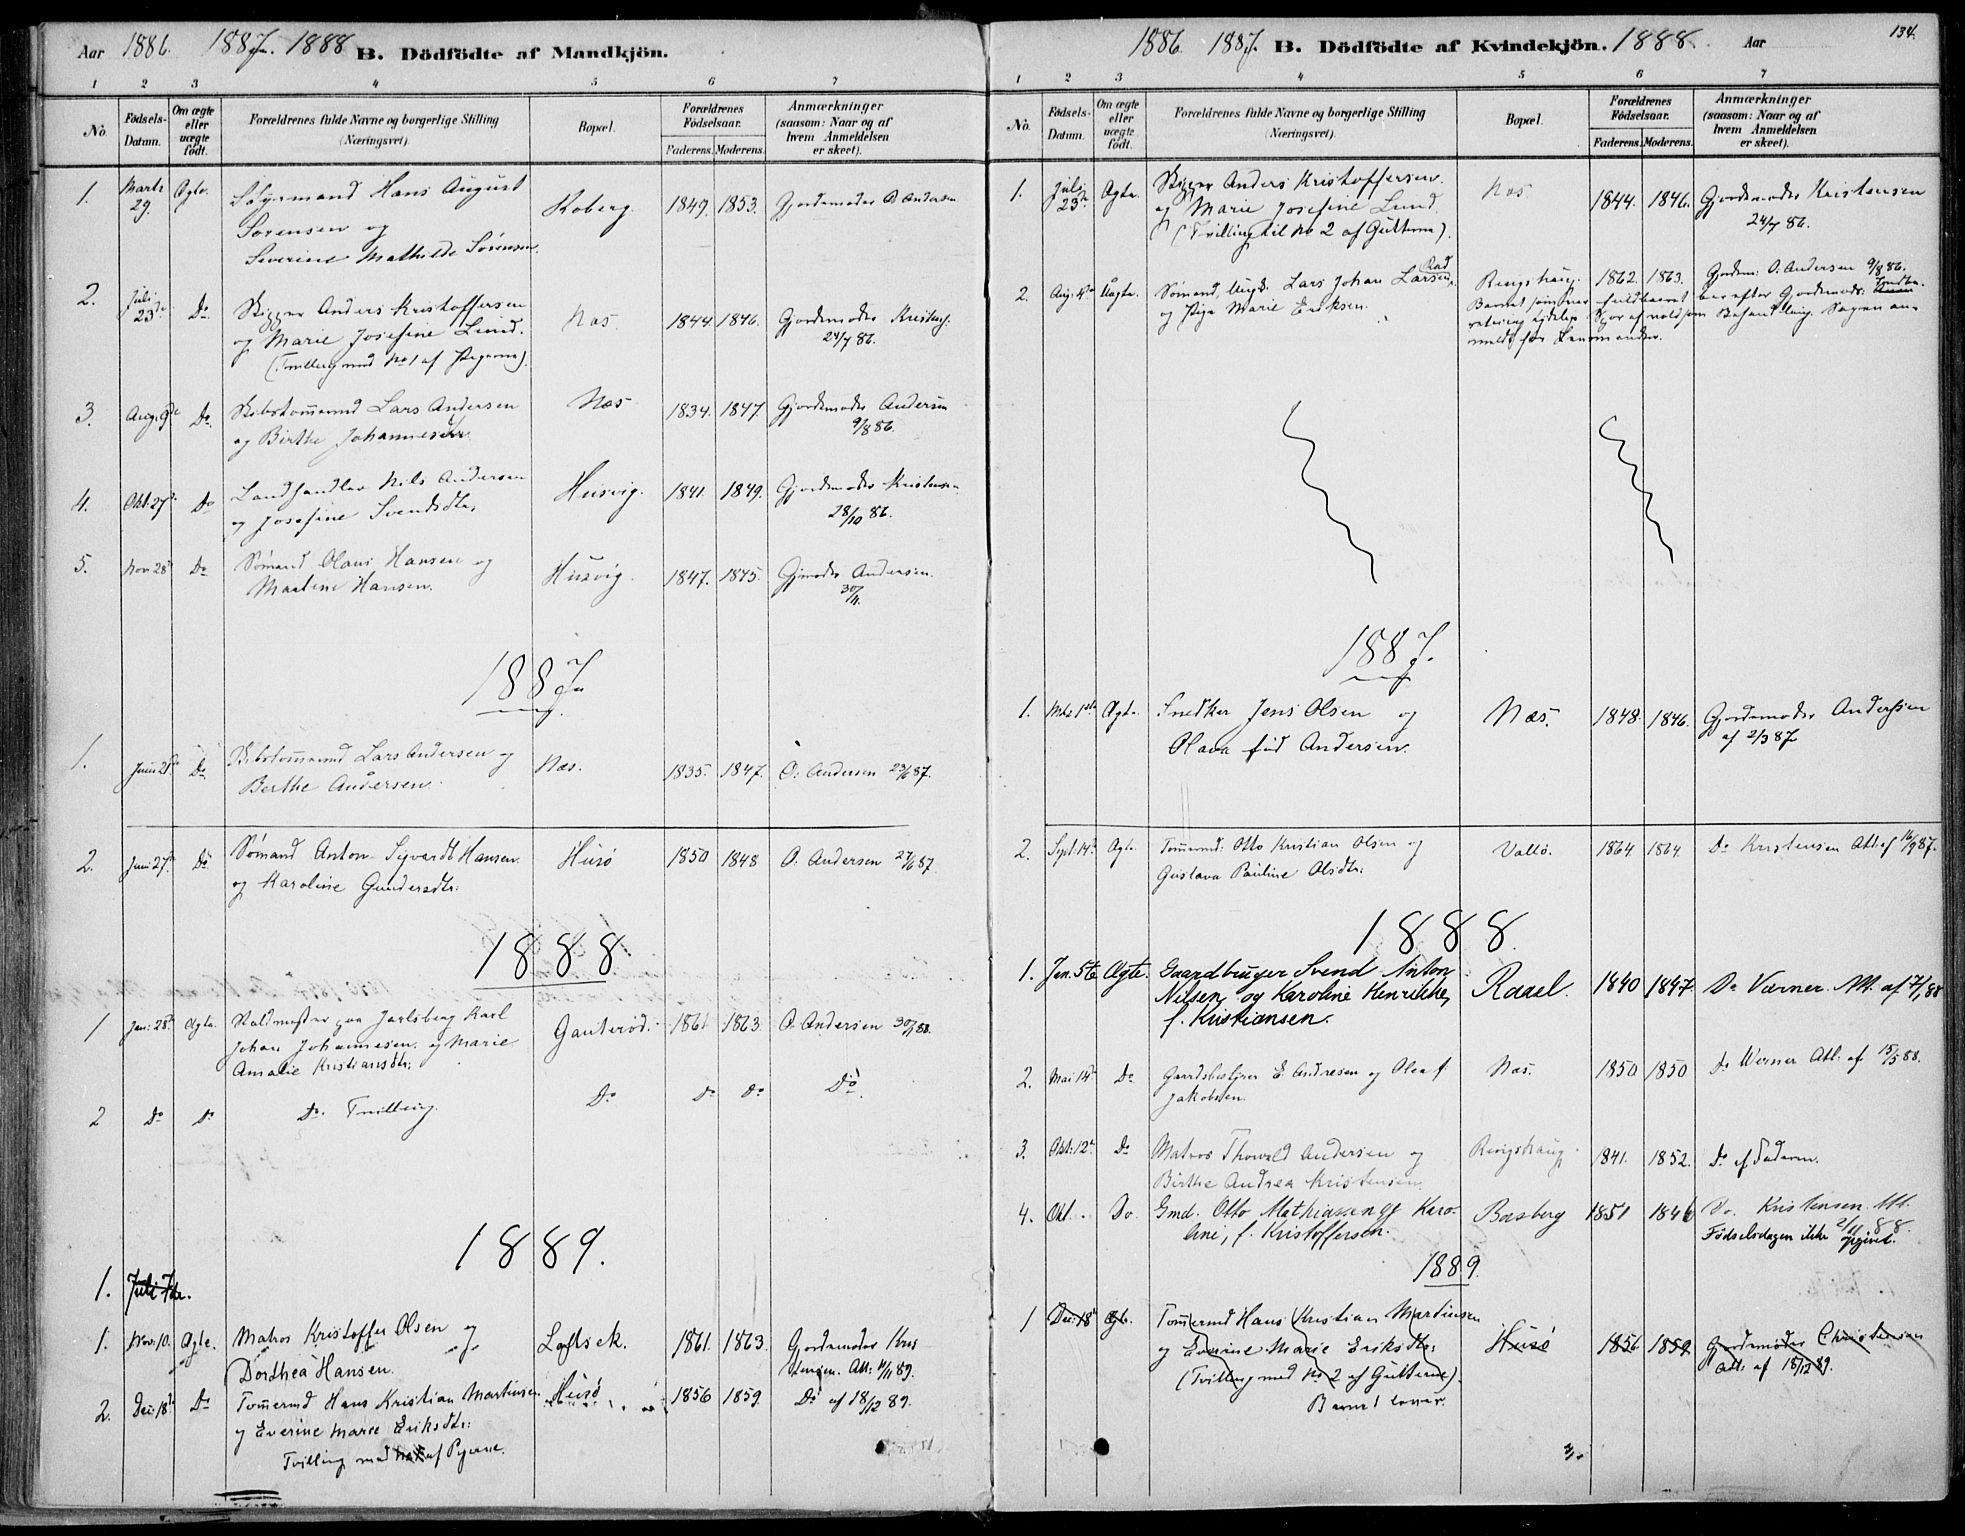 Aar 1886. 1887. 1888 B. Dödfödte af Mandkjön.
1 2 3 4 5 6 7
No. Födsels-Datum. Om ægte eller uægte födt. Forældrenes fulde Navne og borgerlige Stilling (Næringsvei). Bopæl. Forældrenes Födselsaar. Faderens. Moderens. Anmærkninger (saasom: Naar og af hvem Anmeldelsen er skeet).
1. Marts 29. Ægte. Styrmand Hans August Koberg. 1849. 1853. Gjordemoder O. Andersen
Sørensen og
Severine Mathilde Sørensen.
2. Juli 23de Do Skipper Anders Kristoffersen Næs. 1844. 1846. Gjordemoder Kristens:
og Marie Josefine Lund. 24/7 86.
(Tvilling med No 1 af Pigerne).
3. Aug: 9de Do. Skibstømmermd Lars Andersen Næs 1834. 1847. Gjordemoder Andersen
og Birthe Johannesen. 9/8 86.
4. Okt: 27de Do Landhandler Nils Andersen Husvig. 1841. 1849. Gjordemoder Kristensen
og Josefine Svendsdtr. 28/10 86.
5. Nov 28de Do Sømand Olaus Hansen og Husvig. 1847. 1845. Gjmoder Andersen.
Martine Hansen. 30/11.
1887
1. Juni 21de Do Skibstømmermd Lars Andersen og Næs. 1835. 1847. O. Andersen 23/6 87.
Berthe Andersen.
2. Juni 27de Do Sømand Anton Syvardt Hansen Husø 1850 1848 O. Andersen 27/6 87.
og Karoline Gundersdtr:
1888
1 Jan: 28de Ægte. Staldmester paa Jarlsberg Karl Gauterød. 1861 1863. O. Andersen 30/1 88.
Johan Johannesen og Marie
Amalie Kristiansdtr:
2 Do Do Do. Tvilling. Do Do Do Do
1889.
1. Juli 7de.
1. Nov: 10. Ægte. Matros Kristoffer Olsen og Loftsek. 1861. 1863. Gjordemoder Kris
Dorthea Hansen. tensen. Att: 11/11 89.
2. Dec: 18de Do Tømmermd Hans Kristian Martinsen Husø 1856 1859. Do af 18/12 89.
og Everine Marie Eriksdtr:
Tvilling med No 1 af Pigerne.
1886. 1887. B. Dödfödte af Kvindekjön. 1888. Aar 134.
1 2 3 4 5 6 7
No. Födsels-Datum. Om ægte eller uægte födt. Forældrenes fulde Navne og borgerlige Stilling (Næringsvei). Bopæl. Forældrenes Födselsaar. Faderens. Moderens. Anmærkninger (saasom: Naar og af hvem Anmeldelsen er skeet).
1. Juli 23de Ægte. Skipper Anders Kristoffersen Næs. 1844. 1846. Gjordemoder Kristensen
og Marie Josefine Lund. 24/7 86.
(Tvilling til No 2 af Gutterne).
2. Aug: 4de Uægte. Sømand, Ungk. Lars Johan Larsen, Ringshaug. 1862. 1863. Gjordem: O. Andersen 9/8 86.
og Pige Marie Eriksen.
1887.
1. Mrts 1ste Ægte. Snedker Jens Olsen og Næs. 1848. 1846. Gjordemoder Andersen
Olava fød Andersen. af 2/3 87
2. Sept. 14de Ægte. Tømmermd: Otto Kristian Olsen og Vallø. 1864. 1864. Do Kristensen Att af 16/9 87.
Gustava Pauline Olsdtr:
1888.
1. Jan. 5te Ægte. Gaardbruger Svend Anton Raael. 1840 1847. Do Værner. Att. af 7/1 88
Nilsen og Karoline Henrikke,
f. Kristiansen.
2. Mai 14de Do Gaardsbestyrer E. Andresen og Olea f. Næs. 1850. 1850 Do Werner Att: af 15/5 88.
Jakobsen.
3. Okt: 12te Do Matros Thorvald Andersen og Ringshaug 1841. 1852. Do af Faderen.
Birthe Andrea Kristensen
4. Okt. Do. Gmd. Otto Mathiasen og Karo- Basberg 1851 1846 Do. Kristensen Att.
line, f. Kristoffersen. 2/11 88.
Födselsdagen ikke opgivet.
1889.
1 Dec: 18de Ægte. Tømmermd Hans Kristian Martinsen Husø 1856 1859. Gjordemoder Christensen
og Everine Marie Eriksdtr: Att: af 18/12 89.
(Tvilling med No 2 af Gutterne).
Barnet lever.